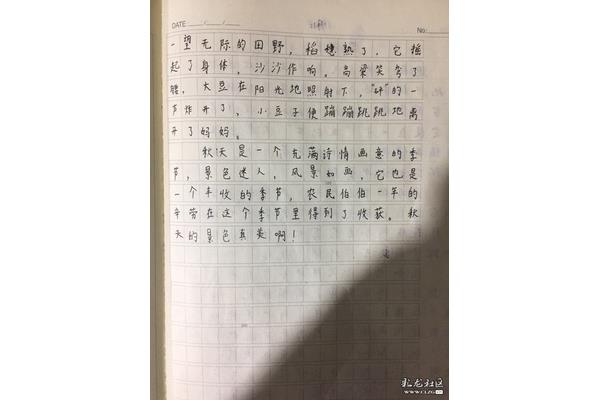 DATE / /
No:
一望无际的田野，稻穗熟了，它摇
起了身体，沙沙作响。高粱笑弯了
腰，大豆在阳光地照射下，"砰"的一
节炸开了，小豆子便蹦蹦跳跳地离
开了妈妈。
秋天是一个充满诗情画意的季
节，景色迷人，风景如画，它也是
一个丰收的季节，农民伯伯一年的
辛劳在这个季节里得到了收获。秋
天的景色真美啊！
龙社区